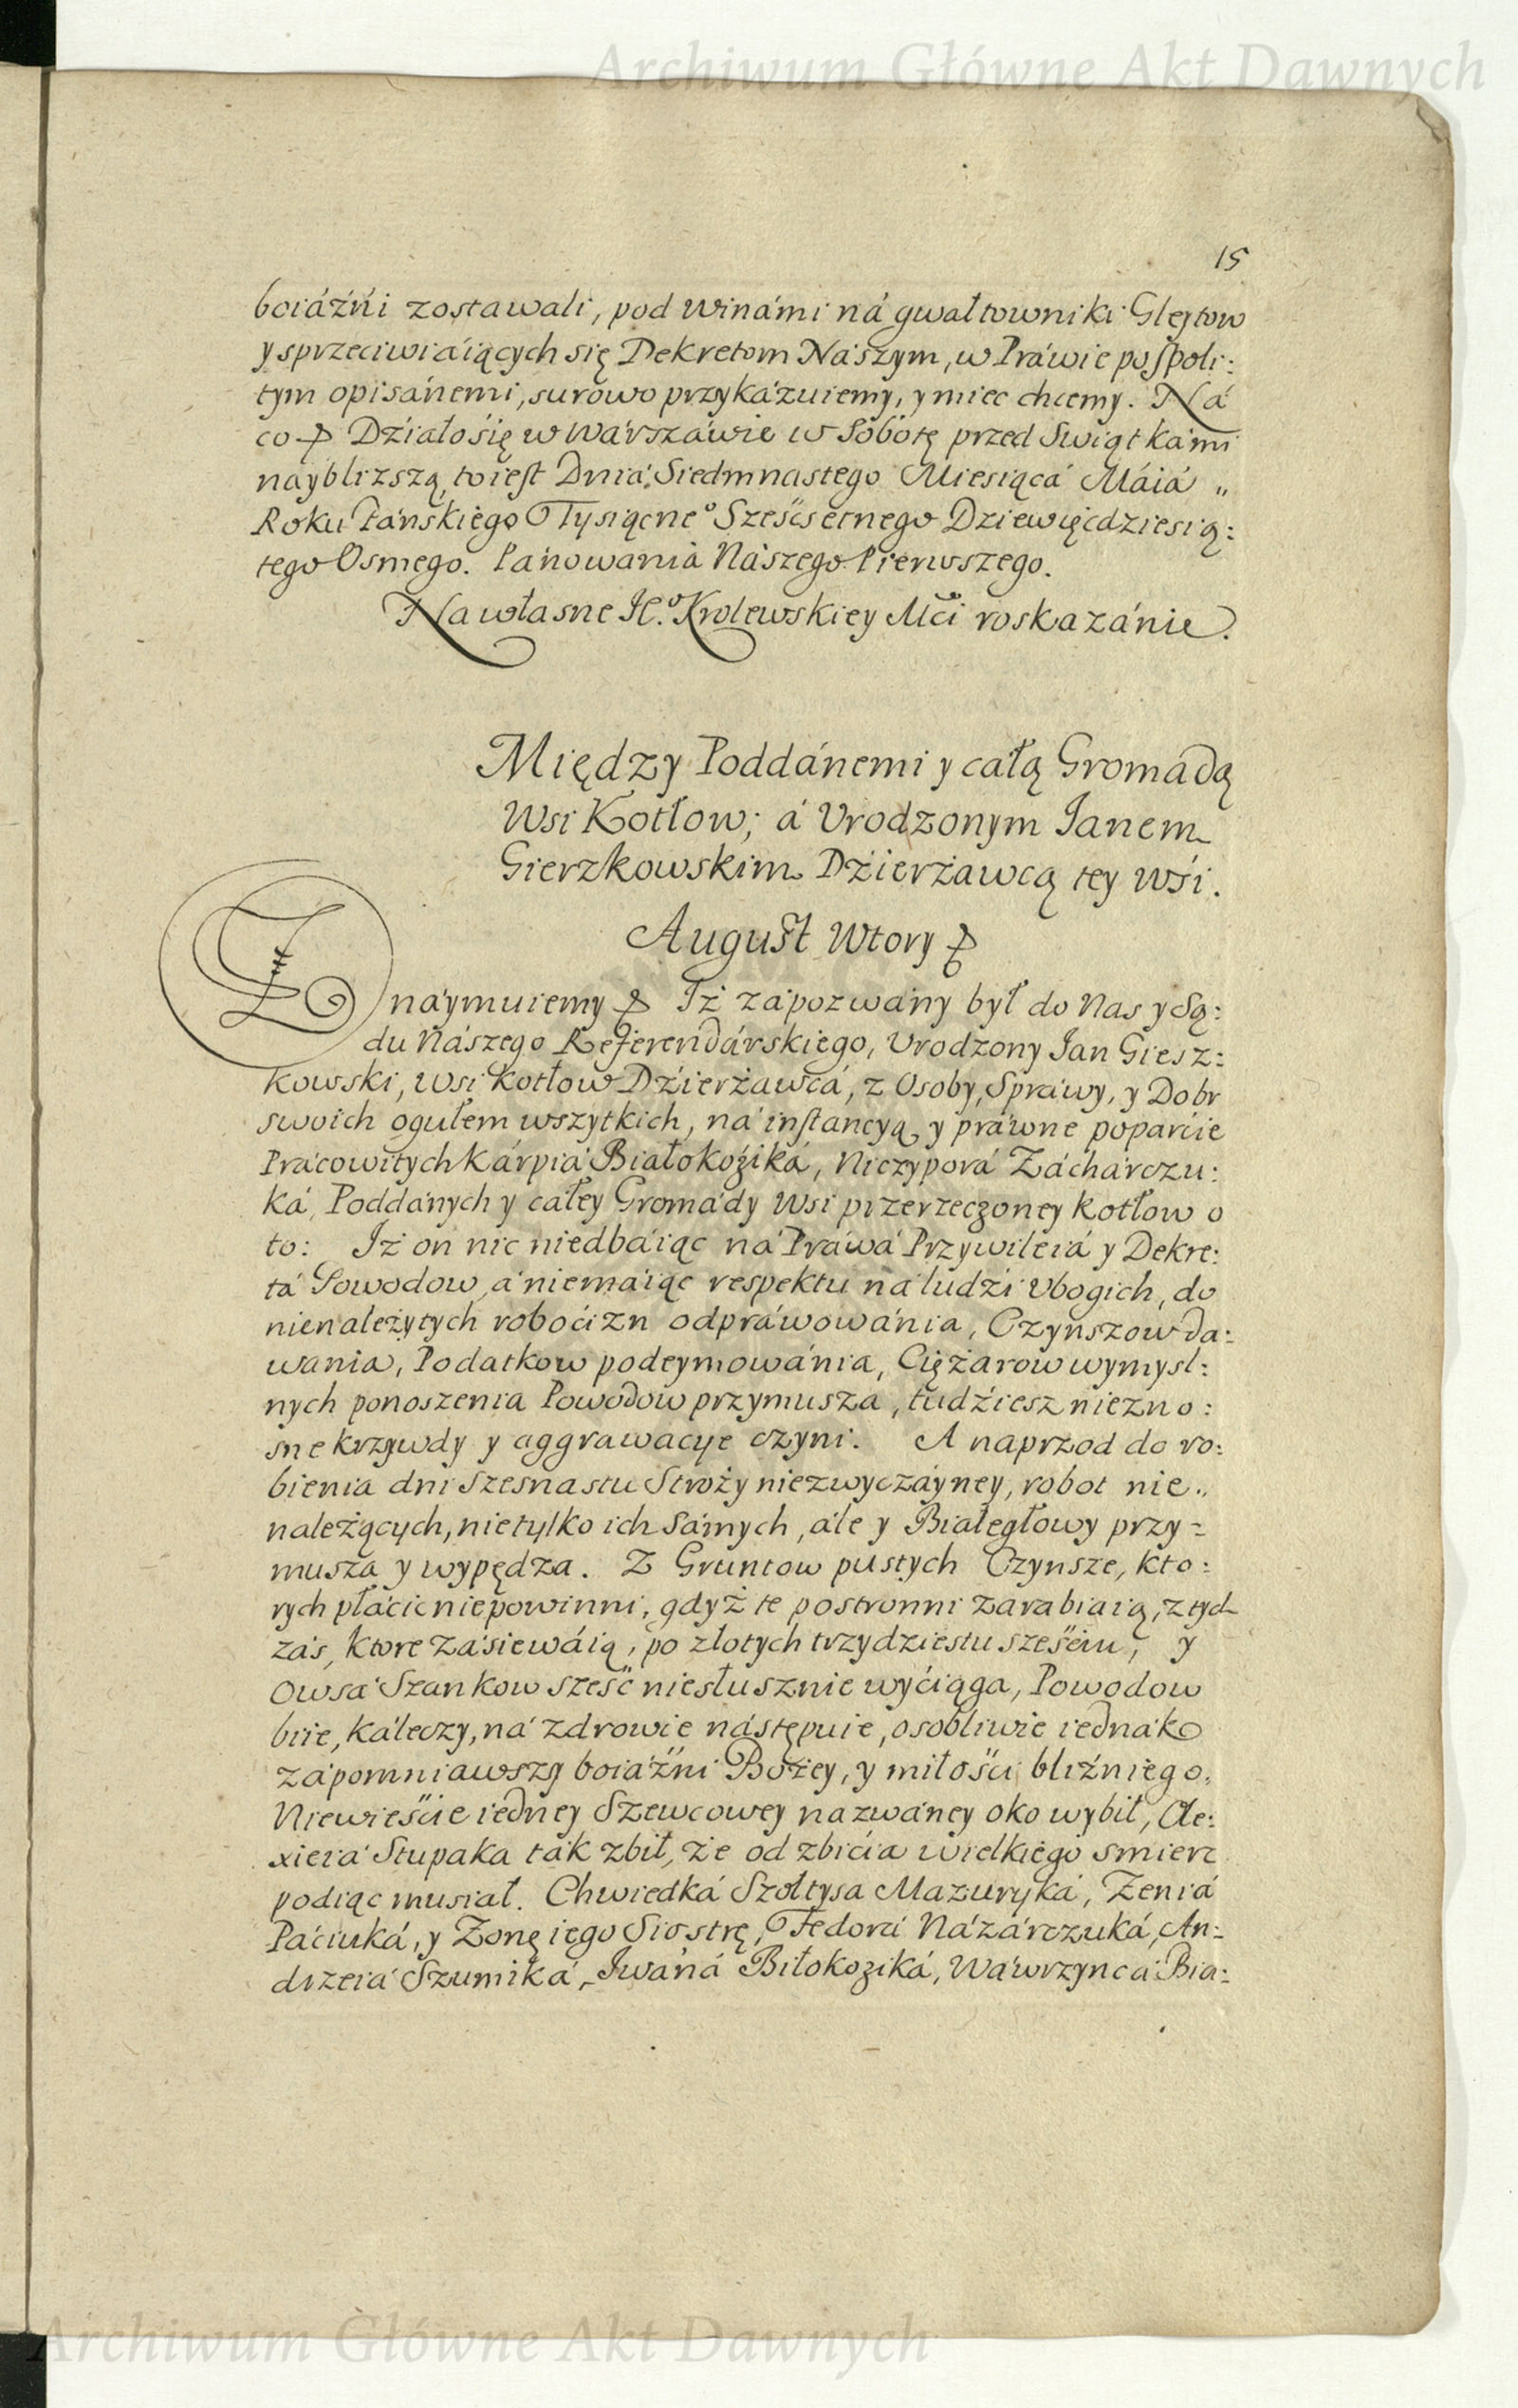 Archiwum Główne Akt Dawnych
15
boiáźńi zostawali, pod winámi ná gwałtowniki Glejtow
y sprzeciwiáiących się Dekretom Nászym, w Práwie pospoli:
tym opisánemi, surowo przykázuiemy, y miec chcemy. Ná
co Działo się w Wárszáwie w Sobotę przed Swiątkámi
naybliższą, to iest Dniá Siedmnastego Miesiącá Máiá „
Roku Pánskiego Tysiącne° Sześćsetnego Dziewięćdziesią:
tego Osmego. Pánowania Nászego Pierwszego.
Na własne JE.° Krolewskiey Mći roskazánie.
Między Poddánemi y całą Gromádą
Wsi Kotłow; á Vrodzonym Janem
Gierzkowskim Dzierżawcą tey Wśi.
August Wtory
Znáymuiemy Iż zápozwány był do Nas y Są:
du Nászego Referendárskiego, Vrodzony Jan Giesz:
kowski, Wsi Kotłow Dźierżawcá, z Osoby, Spráwy, y Dobr
swoich ogułem wszytkich, ná instancyą y práwne poparćie
Prácowitych Kárpiá Białokoźiká, Niczyporá Zácharczu:
ká, Poddánych y całey Gromády Wsi przerzeczoney Kotłow o
to: Iż on nic niedbáiąc ná Práwá Przywileiá y Dekre:
tá Powodow, á niemáiąc respektu ná ludźi Vbogich, do
nienależytych roboćizn odpráwowánia, Czynszow da:
wania, Podatkow podeymowánia, Ciężarow wymysl:
nych ponoszenia Powodow przymusza, tudźiesz niezno:
sne krzywdy y aggrawacye czyni. A naprzod do ro:
bienia dni szesnastu Stroży niezwyczáyney, robot nie„
należących, nie tylko ich Sámych, ále y Białegłowy przy=
musza y wypędza. Z Gruntow pustych Czynsze, kto:
rych płácic niepowinni, gdyż te postronni zarabiaią, z tych
zás, ktore zásiewáią, po złotych trzydziestu sześćiu, y
Owsá Szankow sześć niesłusznie wyćiąga, Powodow
biie, káleczy, ná zdrowie nástępuie, osobliwie iednák
zápomniawszy boiáźńi Bożey, y miłośći bliźniego,
Niewieśćie iedney Szewcowey názwáney oko wybił, Ole:
xieiá Stupaka ták zbił, że od zbićia wielkiego smierc
podiąc musiał. Chwiedká Szołtysa Mazuryká, Zeniá
Páciuká, y Zonę iego Siostrę, Fedorá Názárczuká, An:
drzeiá Szumiłká, Iwáná Biłokoziká, Wáwrzyncá Bia:
Archiwum Główne Akt Dawnych